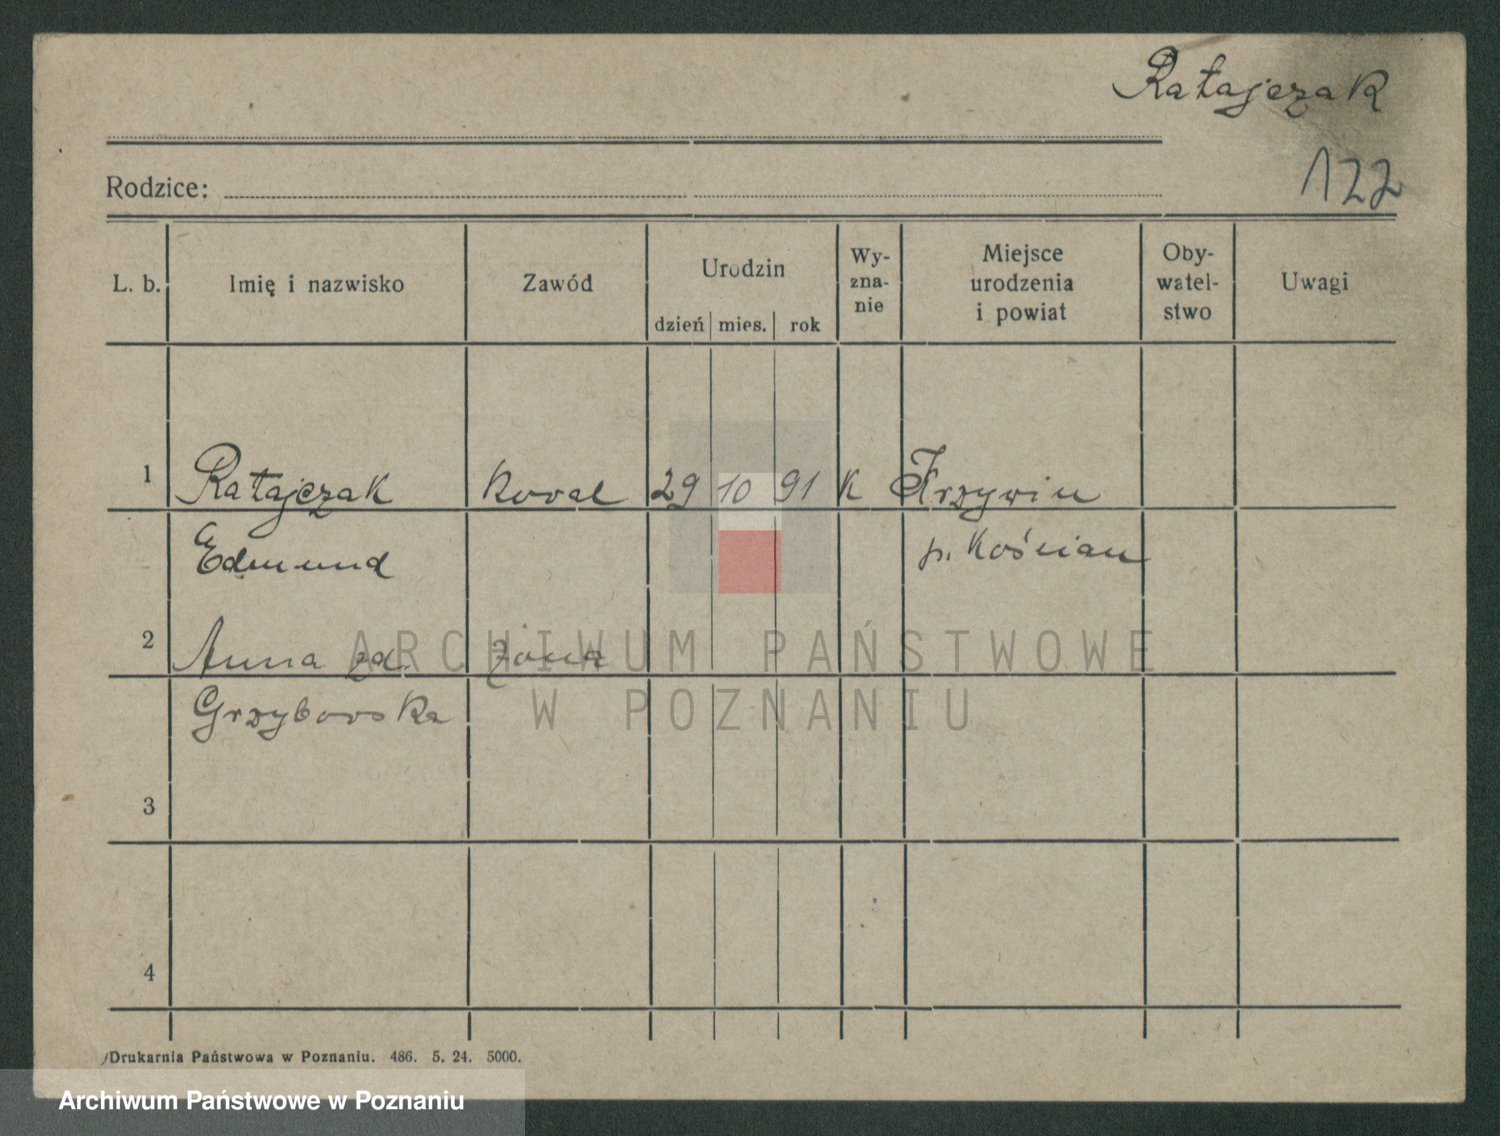 Ratajczak
122
Rodzice:
L. b. Imię i nazwisko Zawód Urodzin dzień mies. rok Wy-zna-nie Miejsce urodzenia i powiat Oby-watel-stwo Uwagi
1 Ratajczak Koval 29 10 91 K Krzywiń
Edmund p. Kościan
2 Anna zd. żona
Grzybowska
3
4
ARCHIWUM PAŃSTWOWE
W POZNANIU
Drukarnia Państwowa w Poznaniu. 486. 5. 24. 5000.
Archiwum Państwowe w Poznaniu